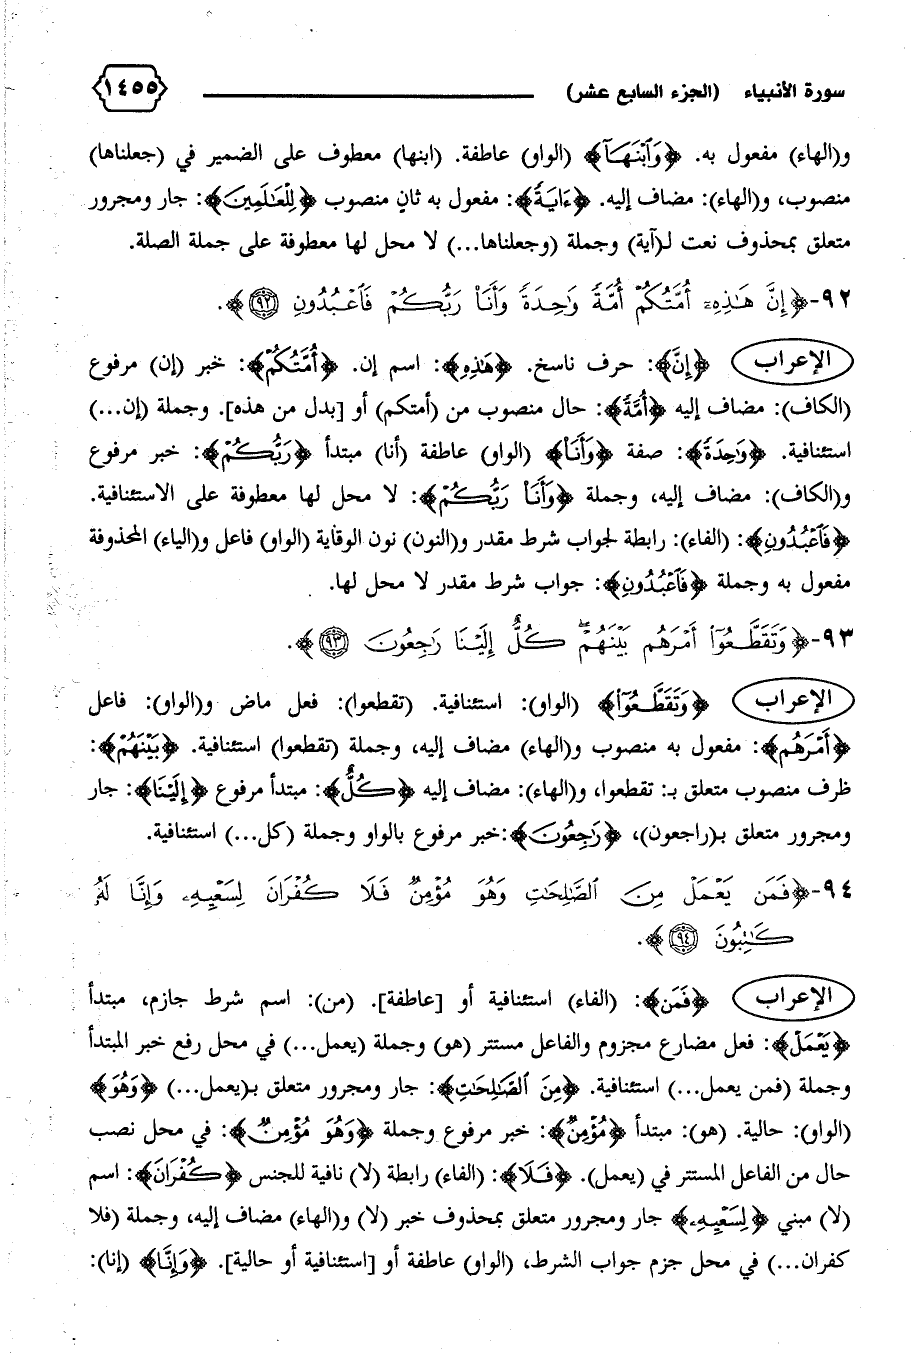 سورة الأنبياء (الجزء السابع عشر) ١٤٥٥
و(الهاء) مفعول به. ﴿وَٱبْنَهَآ﴾ (الواو) عاطفة. (ابنها) معطوف على الضمير في (جعلناها)
منصوب، و(الهاء): مضاف إليه. ﴿ءَايَةً﴾: مفعول به ثانٍ منصوب ﴿لِّلْعَٰلَمِينَ﴾: جار ومجرور
متعلق بمحذوف نعت لـ(آية) وجملة (وجعلناها...) لا محل لها معطوفة على جملة الصلة.
٩٢-﴿إِنَّ هَٰذِهِۦٓ أُمَّتُكُمْ أُمَّةً وَٰحِدَةً وَأَنَا۠ رَبُّكُمْ فَٱعْبُدُونِ ٩٢﴾.
الإعراب ﴿إِنَّ﴾: حرف ناسخ. ﴿هَٰذِهِ﴾: اسم إن. ﴿أُمَّتُكُمْ﴾: خبر (إن) مرفوع
(الكاف): مضاف إليه ﴿أُمَّةً﴾: حال منصوب من (أمتكم) أو [بدل من هذه]. وجملة (إن...)
استئنافية. ﴿وَٰحِدَةً﴾: صفة ﴿وَأَنَا۠﴾ (الواو) عاطفة (أنا) مبتدأ ﴿رَبُّكُمْ﴾: خبر مرفوع
و(الكاف): مضاف إليه، وجملة ﴿وَأَنَا۠ رَبُّكُمْ﴾: لا محل لها معطوفة على الاستئنافية.
﴿فَٱعْبُدُونِ﴾: (الفاء): رابطة لجواب شرط مقدر و(النون) نون الوقاية (الواو) فاعل و(الياء) المحذوفة
مفعول به وجملة ﴿فَٱعْبُدُونِ﴾: جواب شرط مقدر لا محل لها.
٩٣-﴿وَتَقَطَّعُوٓا۟ أَمْرَهُم بَيْنَهُمْ ۖ كُلٌّ إِلَيْنَا رَٰجِعُونَ ٩٣﴾.
الإعراب ﴿وَتَقَطَّعُوٓا۟﴾ (الواو): استئنافية. (تقطعوا): فعل ماض و(الواو): فاعل
﴿أَمْرَهُم﴾: مفعول به منصوب و(الهاء) مضاف إليه، وجملة (تقطعوا) استئنافية. ﴿بَيْنَهُمْ﴾:
ظرف منصوب متعلق بـ: تقطعوا، و(الهاء): مضاف إليه ﴿كُلٌّ﴾: مبتدأ مرفوع ﴿إِلَيْنَا﴾: جار
ومجرور متعلق بـ(راجعون)، ﴿رَٰجِعُونَ﴾:خبر مرفوع بالواو وجملة (كل...) استئنافية.
٩٤-﴿فَمَن يَعْمَلْ مِنَ ٱلصَّٰلِحَٰتِ وَهُوَ مُؤْمِنٌ فَلَا كُفْرَانَ لِسَعْيِهِۦ وَإِنَّا لَهُۥ
كَٰتِبُونَ ٩٤﴾.
الإعراب ﴿فَمَن﴾: (الفاء) استئنافية أو [عاطفة]. (من): اسم شرط جازم، مبتدأ
﴿يَعْمَلْ﴾: فعل مضارع مجزوم والفاعل مستتر (هو) وجملة (يعمل...) في محل رفع خبر المبتدأ
وجملة (فمن يعمل...) استئنافية. ﴿مِنَ ٱلصَّٰلِحَٰتِ﴾: جار ومجرور متعلق بـ(يعمل...) ﴿وَهُوَ﴾
(الواو): حالية. (هو): مبتدأ ﴿مُؤْمِنٌ﴾: خبر مرفوع وجملة ﴿وَهُوَ مُؤْمِنٌ﴾: في محل نصب
حال من الفاعل المستتر في (يعمل). ﴿فَلَا﴾: (الفاء) رابطة (لا) نافية للجنس ﴿كُفْرَانَ﴾: اسم
(لا) مبني ﴿لِسَعْيِهِۦ﴾ جار ومجرور متعلق بمحذوف خبر (لا) و(الهاء) مضاف إليه، وجملة (فلا
كفران...) في محل جزم جواب الشرط، (الواو) عاطفة أو [استئنافية أو حالية]. ﴿وَإِنَّا﴾ (إنا):